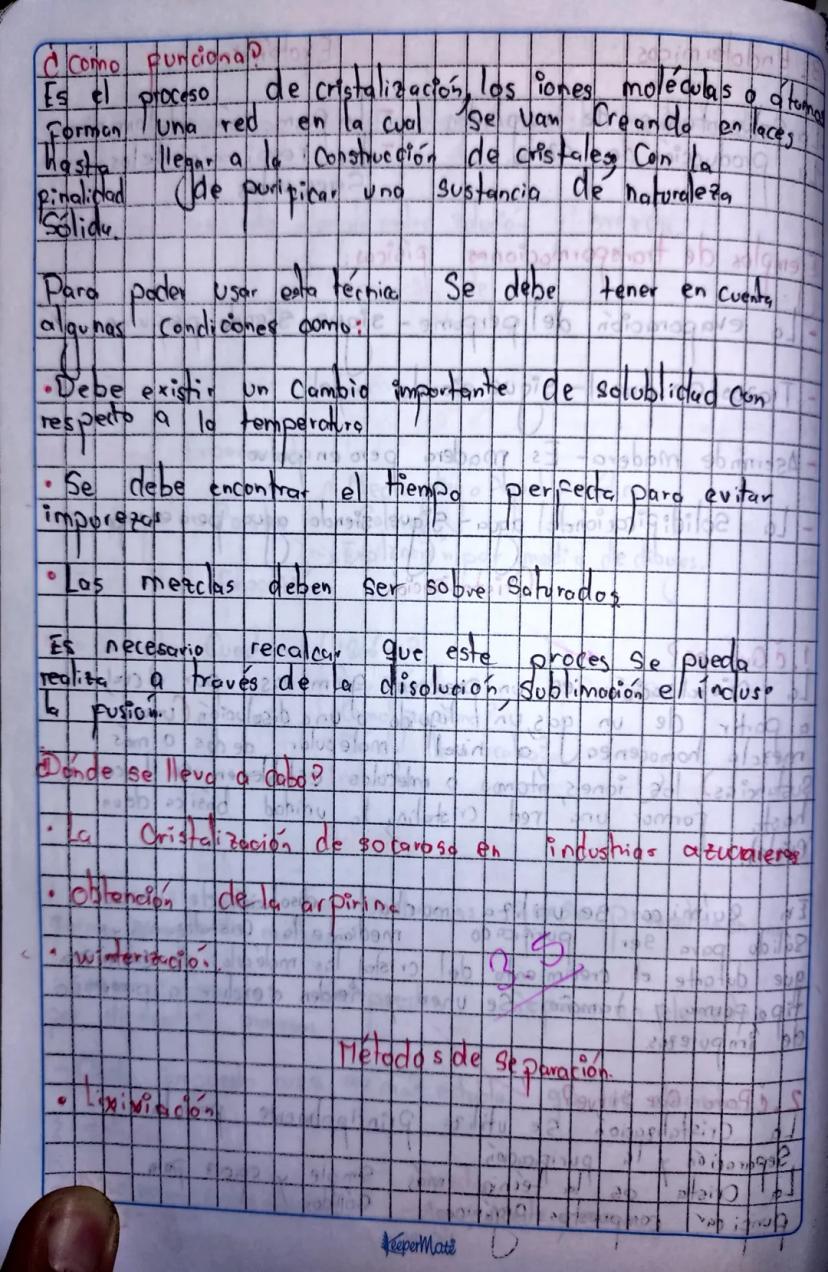 ¿cómo funciona?
Es el proceso de cristalización, los iones moléculas o átomos
Forman una red en la cual se van Creando enlaces
Hasta llegar a la Construcción de cristales, Con la
finalidad de purificar una sustancia de naturaleza
Sólida.
Para poder usar esta técnica Se debe tener en cuenta
algunas condiciones como:
• Debe existir un Cambio importante de solublidad con
respecto a la temperatura
• Se debe encontrar el tiempo perfecta para evitar
imporezas
• Las mezclas deben ser sobre Saturados
Es necesario recalcar que este proces se pueda
realiza a través de la disolución, Sublimación e incluso
la fusión.
Dónde se lleva a cabo?
• La Cristalización de socarosa en industrias azucareras
• obtención de la arpirina
• winterización.
3 5
Métodos de Separación.
• Lixiviación
KeeperMate